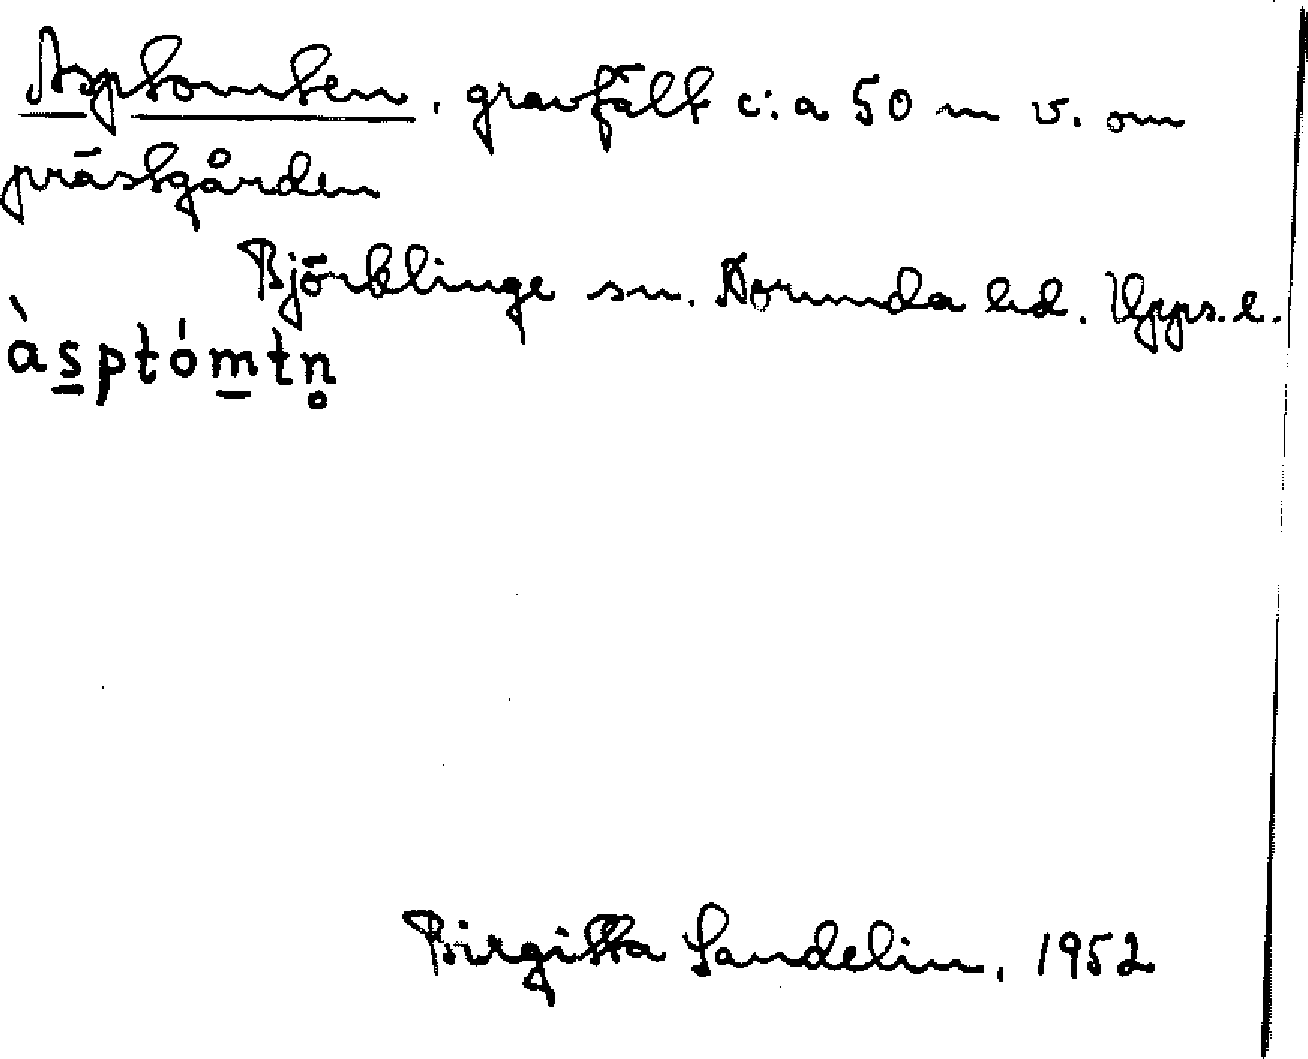 Asptomten, gravfält c:a 50 m v. om
prästgården
Björklinge sn. Norunda hd. Upps. l.
àsptómtn̥
Birgitta Sandelin, 1952